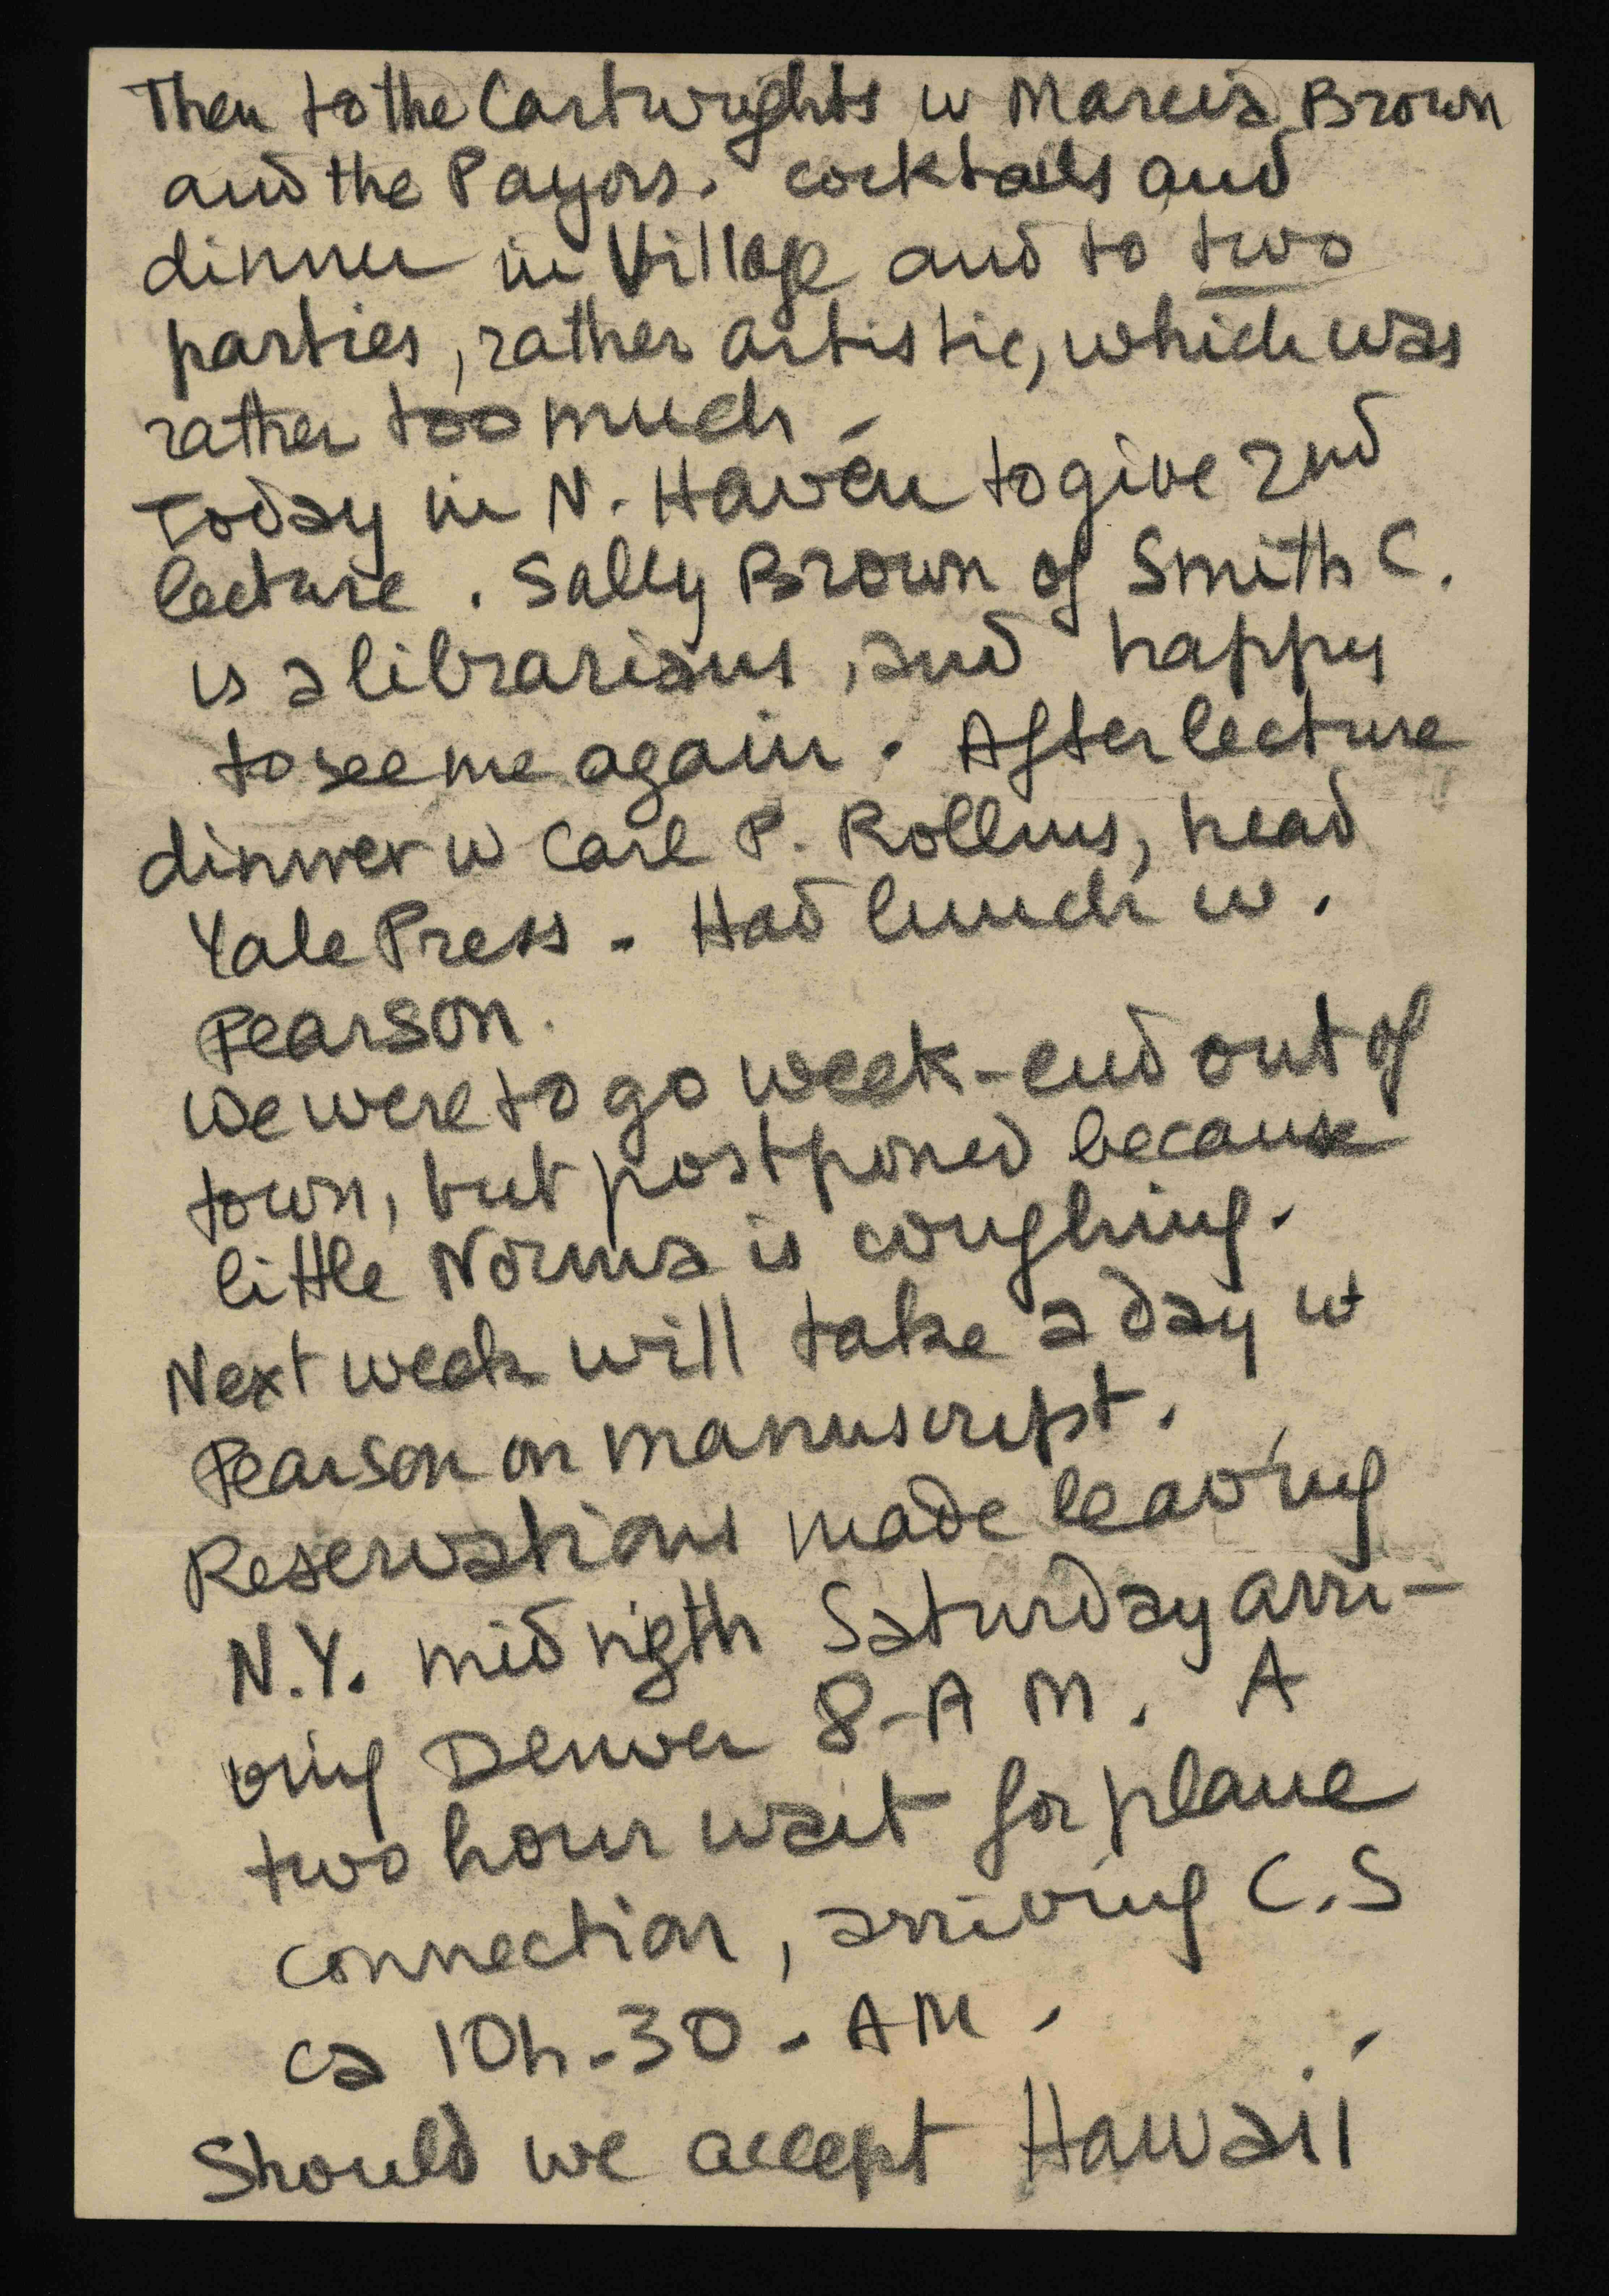 Then to the Cartwrights w Marcia Brown
and the Payors. cocktails and
dinner in Village and to two
parties, rather artistic, which was
rather too much.
Today in N. Haven to give 2nd
lecture. Sally Brown of Smith C.
is a librarians, and happy
to see me again. After lecture
dinner w Carl P. Rollins, head
Yale Press. Had lunch w.
Pearson.
We were to go week-end out of
town, but postponed because
little Norma is coughing.
Next week will take a day wt
Pearson on manuscript.
Reservations made leaving
N.Y. midnigth Saturday arri-
ving Denver 8-AM. A
two hour wait for plane
connection, arriving C.S
ca 10h-30-AM.
Should we accept Hawaii